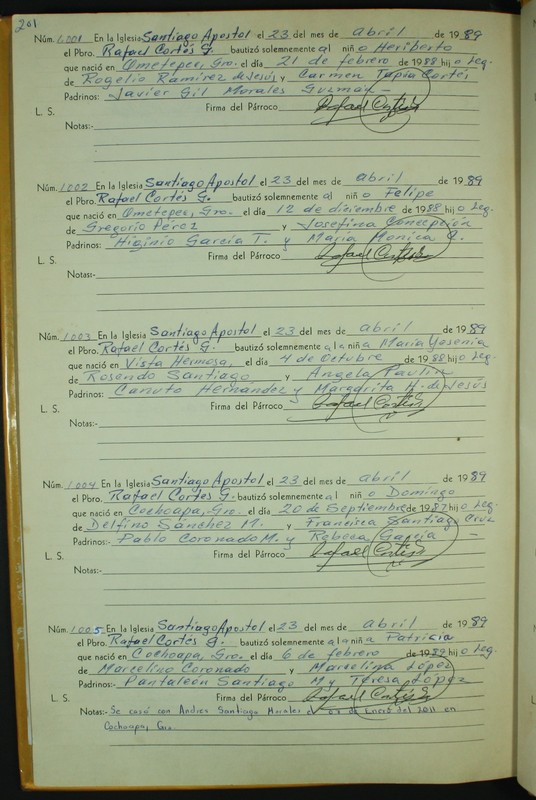 201
Núm. 1001 En la Iglesia Santiago Apostol el 23 del mes de abril de 1989
el Pbro. Rafael Cortés G. bautizó solemnemente al niño Heriberto
que nació en Ometepec, Gro. el día 21 de febrero de 1988 hijo Leg.
de Rogelio Ramirez de Jesús y Carmen Tapia Cortés
Padrinos: Javier Gil Morales Guzmán
L. S. Firma del Párroco Rafael Cortés G.
Notas:-
Núm. 1002 En la Iglesia Santiago Apostol el 23 del mes de abril de 1989
el Pbro. Rafael Cortés G. bautizó solemnemente al niño Felipe
que nació en Ometepec, Gro. el día 12 de diciembre de 1988 hijo Leg.
de Gregorio Pérez y Josefina Concepción
Padrinos: Higinio García T. y María Monica C.
L. S. Firma del Párroco Rafael Cortés G.
Notas:-
Núm. 1003 En la Iglesia Santiago Apostol el 23 del mes de abril de 1989
el Pbro. Rafael Cortés G. bautizó solemnemente a la niña María Yesenia
que nació en Vista Hermosa, el día 4 de Octubre de 1988 hijo Leg.
de Rosendo Santiago y Angela Paulin
Padrinos: Canuto Hernandez y Margarita H. de Jesús
L. S. Firma del Párroco Rafael Cortés G.
Notas:-
Núm. 1004 En la Iglesia Santiago Apostol el 23 del mes de abril de 1989
el Pbro. Rafael Cortés G. bautizó solemnemente al niño Domingo
que nació en Cochoapa, Gro. el día 20 de Septiembre de 1987 hijo Leg.
de Delfino Sánchez M. y Francisca Santiago Cruz
Padrinos:- Pablo Coronado M. y Rebeca García
L. S. Firma del Párroco Rafael Cortés G.
Notas:-
Núm. 1005 En la Iglesia Santiago Apostol el 23 del mes de abril de 1989
el Pbro. Rafael Cortés G. bautizó solemnemente a la niña Patricia
que nació en Cochoapa, Gro. el día 6 de febrero de 1989 hijo Leg.
de Marcelino Coronado y Marcelina López
Padrinos:- Pantaleón Santiago M y Teresa López
L. S. Firma del Párroco Rafael Cortés G.
Notas:- Se casó con Andres Santiago Morales el de Enero del 2011 en
Cochoapa, Gro.